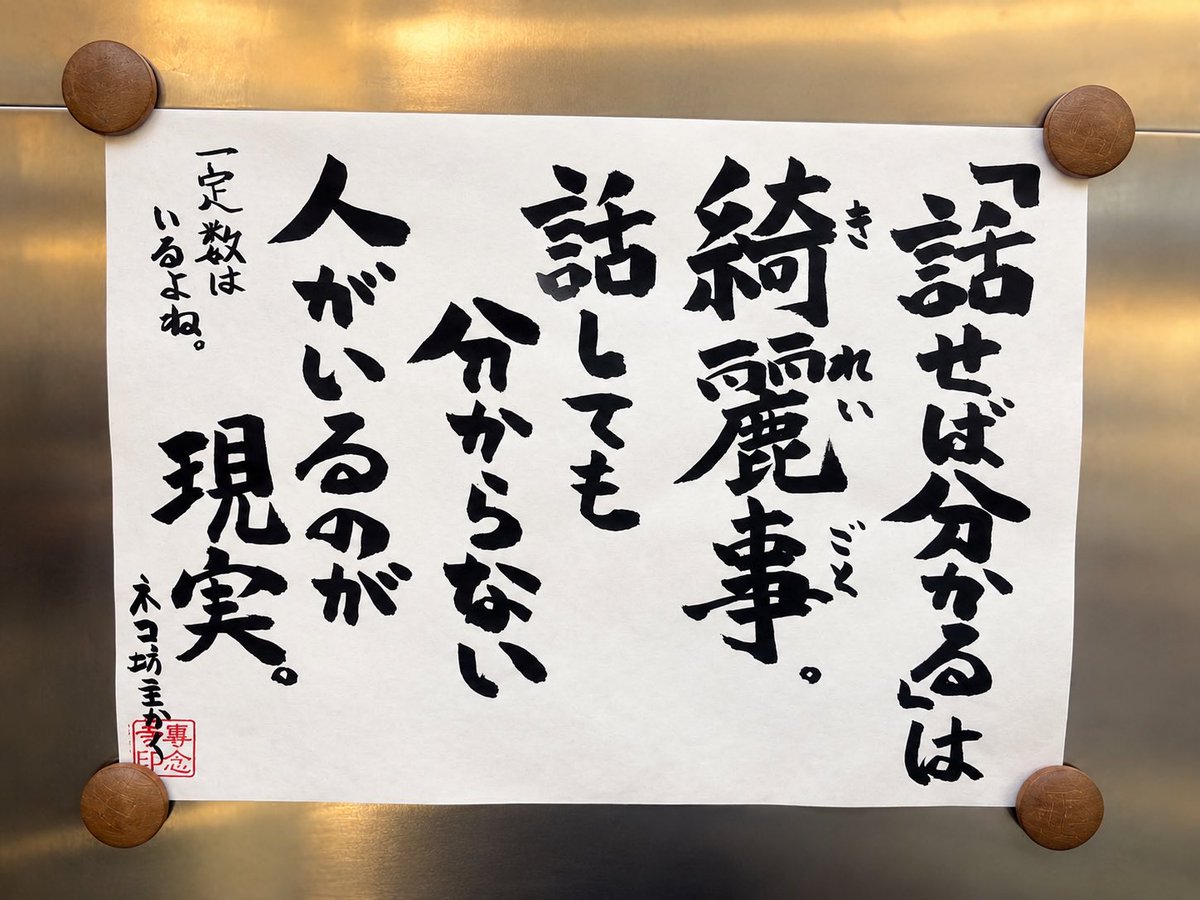 「話せば分かる」は
綺麗事。
きれいごと
話しても
分からない
人がいるのが
現実。
一定数は
いるよね。
ネコ坊主かく
專念
寺印